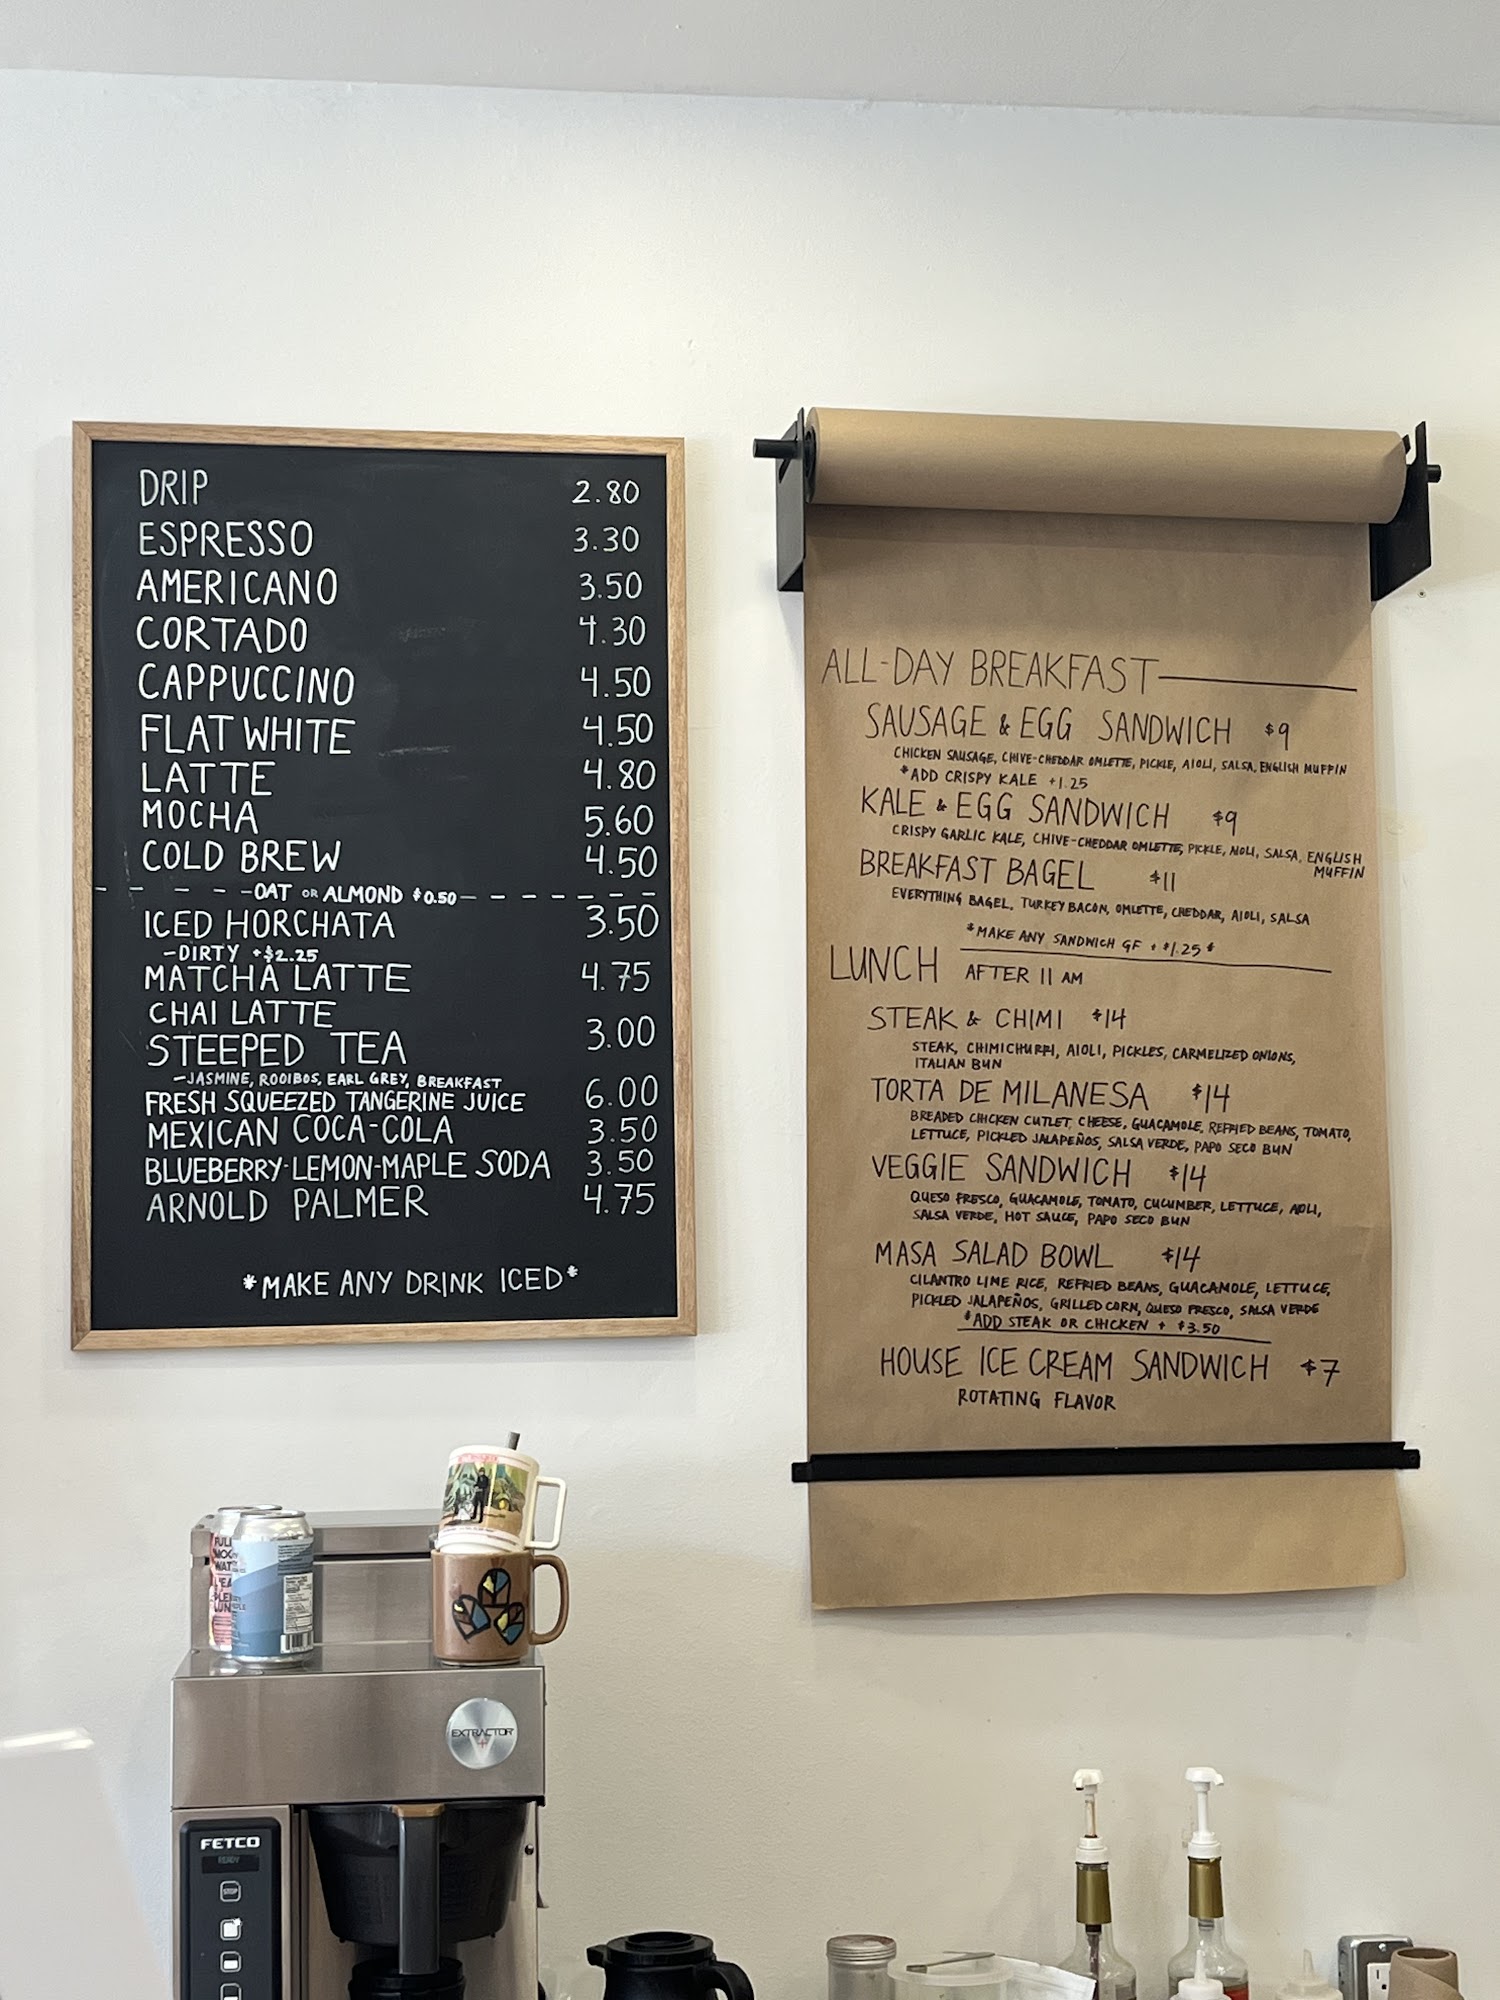 DRIP 2.80
ESPRESSO 3.30
AMERICANO 3.50
CORTADO 4.30
CAPPUCCINO 4.50
FLAT WHITE 4.50
LATTE 4.80
MOCHA 5.60
COLD BREW 4.50
OAT OR ALMOND $0.50
ICED HORCHATA 3.50
-DIRTY +$2.25
MATCHA LATTE 4.75
CHAI LATTE
STEEPED TEA 3.00
-JASMINE, ROOIBOS, EARL GREY, BREAKFAST
FRESH SQUEEZED TANGERINE JUICE 6.00
MEXICAN COCA-COLA 3.50
BLUEBERRY-LEMON-MAPLE SODA 3.50
ARNOLD PALMER 4.75
*MAKE ANY DRINK ICED*
ALL-DAY BREAKFAST
SAUSAGE & EGG SANDWICH $9
CHICKEN SAUSAGE, CHIVE-CHEDDAR OMLETTE, PICKLE, AIOLI, SALSA, ENGLISH MUFFIN
*ADD CRISPY KALE +1.25
KALE & EGG SANDWICH $9
CRISPY GARLIC KALE, CHIVE-CHEDDAR OMLETTE, PICKLE, AIOLI, SALSA, ENGLISH
MUFFIN
BREAKFAST BAGEL $11
EVERYTHING BAGEL, TURKEY BACON, OMLETTE, CHEDDAR, AIOLI, SALSA
*MAKE ANY SANDWICH GF + $1.25*
LUNCH AFTER 11 AM
STEAK & CHIMI $14
STEAK, CHIMICHURRI, AIOLI, PICKLES, CARMELIZED ONIONS,
ITALIAN BUN
TORTA DE MILANESA $14
BREADED CHICKEN CUTLET, CHEESE, GUACAMOLE, REFRIED BEANS, TOMATO,
LETTUCE, PICKLED JALAPEÑOS, SALSA VERDE, PAPO SECO BUN
VEGGIE SANDWICH $14
QUESO FRESCO, GUACAMOLE, TOMATO, CUCUMBER, LETTUCE, AIOLI,
SALSA VERDE, HOT SAUCE, PAPO SECO BUN
MASA SALAD BOWL $14
CILANTRO LIME RICE, REFRIED BEANS, GUACAMOLE, LETTUCE,
PICKLED JALAPEÑOS, GRILLED CORN, QUESO FRESCO, SALSA VERDE
*ADD STEAK OR CHICKEN + $3.50
HOUSE ICE CREAM SANDWICH $7
ROTATING FLAVOR
EXTRACTOR
V+
FETCO
READY
STOP